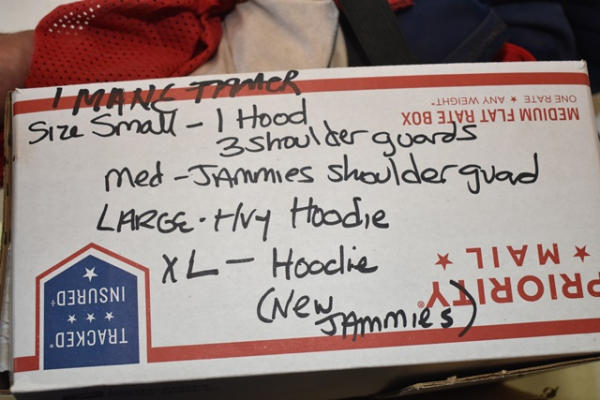 1 MANE TAMER
Size Small - 1 Hood
3 shoulder guards
med - JAMMIES shoulder guard
LARGE - H/vy Hoodie
XL - Hoodie
(New
JAMMIES)
MEDIUM FLAT RATE BOX
ONE RATE ★ ANY WEIGHT*
PRIORITY®
★ MAIL ★
TRACKED*
★ ★ ★
INSURED†
★